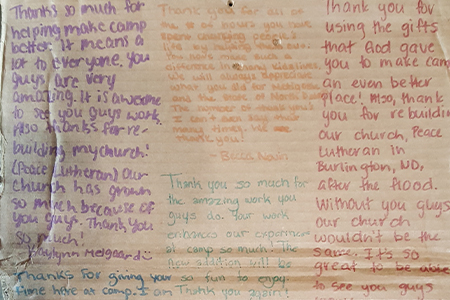 Thanks so much for
helping make camp
better. It means a
lot to everyone, you
guys are very
amazing. It is awesome
to see you guys work.
Also thanks for re-
building my church!
(Peace Lutheran) Our
church has grown
so much because of
you guys. Thank you
so much!
Melgaard
Thank you for all of
the # of hours you have
spent
life by helping
difference in many
We will always appreciate
what you did for
and the most of March
I can't even say that
many times. We
thank you!
- Becca
Thank you so much for
the amazing work you
guys do. Your work
enhances our experience
at camp so much! The
new addition will be
so fun to enjoy.
Thank you again!
Thanks for giving your
time here at camp. I am
thank you for
using the gifts
that God gave
you to make camp
an even better
place! Also, thank
you for rebuilding
our church, Peace
Lutheran in
Burlington, ND,
after the flood.
Without you guys
our church
wouldn't be the
same. It's so
great to be able
to see you guys